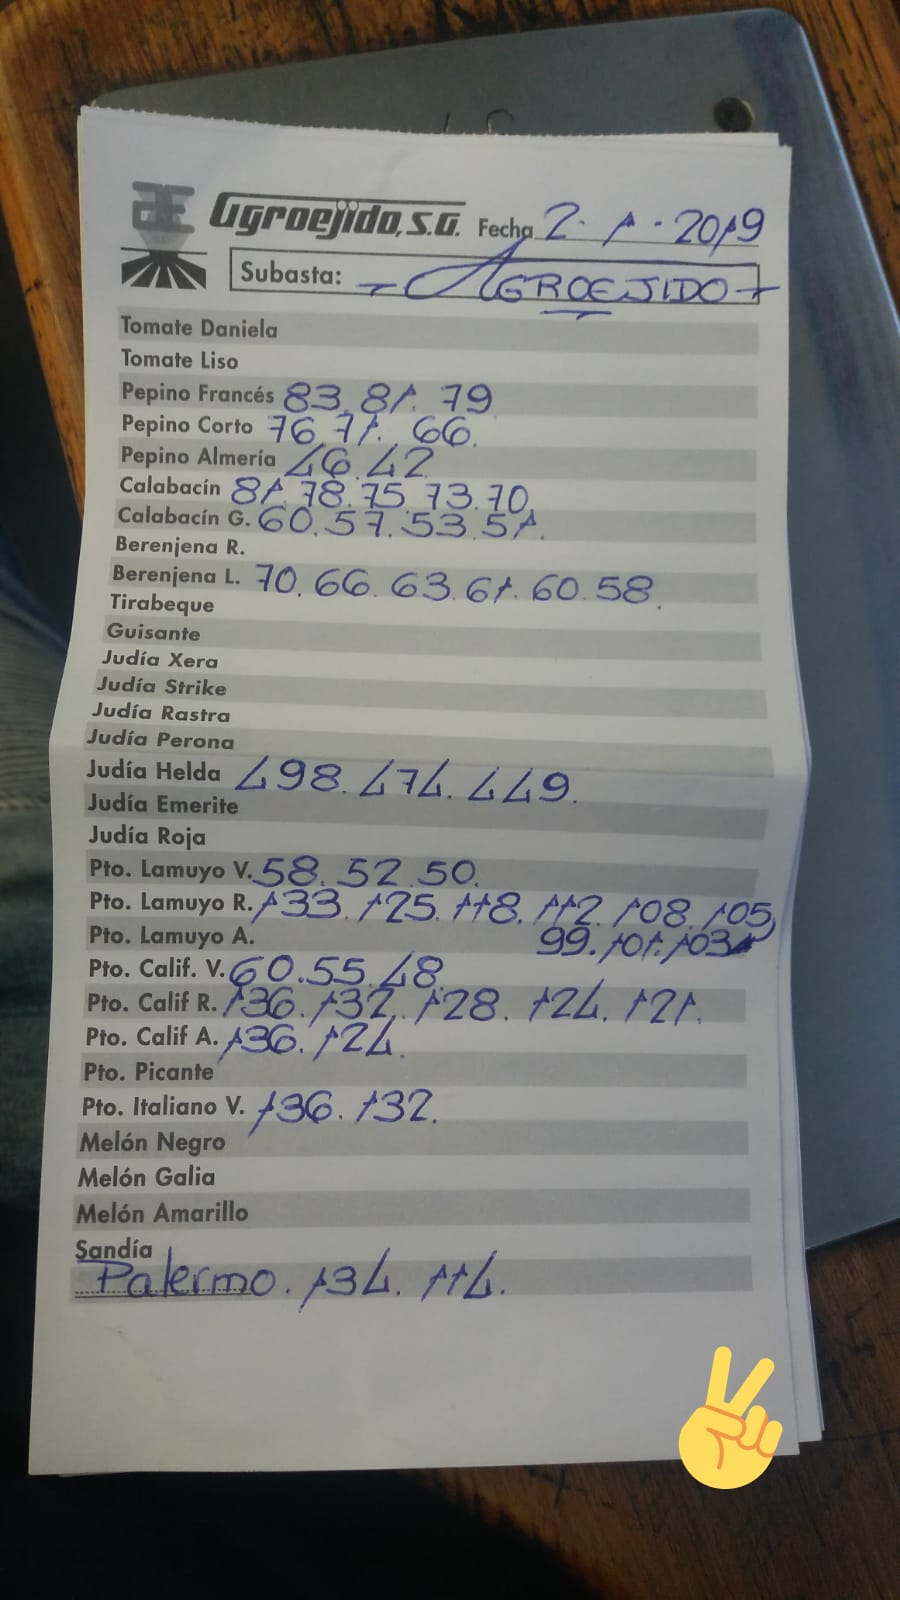 Agroejido, S.A. Fecha 2 - 1 - 2019
Subasta: - AGROEJIDO -
Tomate Daniela
Tomate Liso
Pepino Francés 83. 81. 79
Pepino Corto 76 71. 66.
Pepino Almería 46. 42
Calabacín 81. 78. 75. 73. 70
Calabacín G. 60. 57. 53. 51.
Berenjena R.
Berenjena L. 70. 66. 63. 61. 60. 58.
Tirabeque
Guisante
Judía Xera
Judía Strike
Judía Rastra
Judía Perona
Judía Helda 498. 474. 449.
Judía Emerite
Judía Roja
Pto. Lamuyo V. 58. 52. 50.
Pto. Lamuyo R. 133. 125. 118. 112. 108. 105,
Pto. Lamuyo A. 99. 101. 103
Pto. Calif. V. 60. 55. 48
Pto. Calif R. 136. 132. 128. 124. 121.
Pto. Calif A. 136. 124.
Pto. Picante
Pto. Italiano V. 136. 132.
Melón Negro
Melón Galia
Melón Amarillo
Sandía
Palermo. 134. 114.